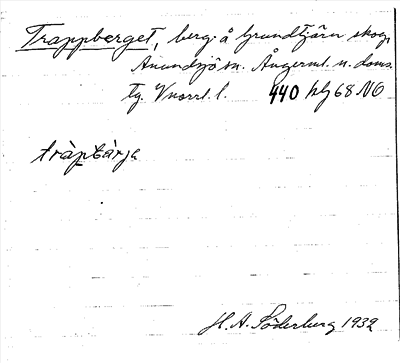 Trappberget, berg: å Grundtjärn skog,
Anundsjö sn. Ångerml. n. doms.
tg. Vnorrl. l. 440 hlj 68 NO
tràpbàrja
H. A. Söderberg 1932